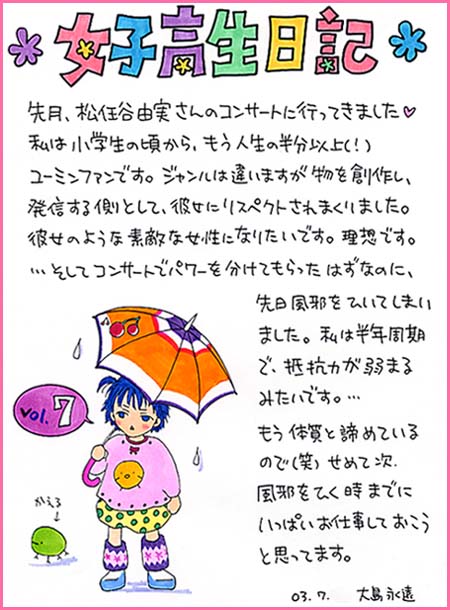 女子高生日記
先月、松任谷由実さんのコンサートに行ってきました♡
私は小学生の頃から、もう人生の半分以上(!)
ユーミンファンです。ジャンルは違いますが物を創作し、
発信する側として、彼女にリスペクトされまくりました。
彼女のような素敵な女性になりたいです。理想です。
…そしてコンサートでパワーを分けてもらったはずなのに、
先日風邪をひいてしまい
ました。私は半年周期
で、抵抗力が弱まる
みたいです。…
もう体質と諦めている
ので(笑)せめて次、
風邪をひく時までに
いっぱいお仕事しておこう
と思ってます。
vol. 7
かえる
03.7. 大島永遠